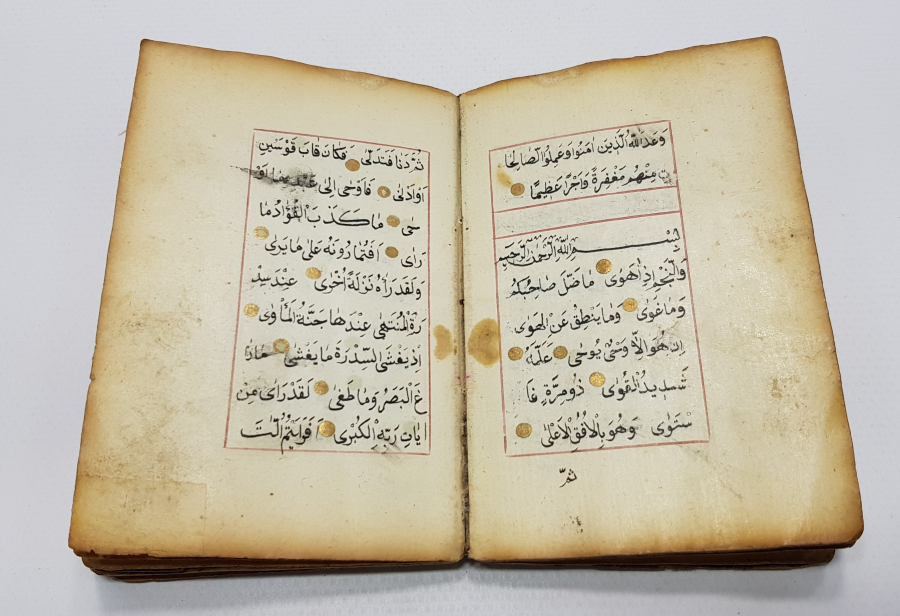 وَعَدَ اللّٰهُ الَّذِينَ اٰمَنُوا وَعَمِلُوا الصَّالِحَا
تِ مِنْهُمْ مَغْفِرَةً وَاَجْرًا عَظِيمًا
بِسْمِ اللّٰهِ الرَّحْمٰنِ الرَّحِيمِ
وَالنَّجْمِ اِذَا هَوٰى مَا ضَلَّ صَاحِبُكُمْ
وَمَا غَوٰى وَمَا يَنْطِقُ عَنِ الْهَوٰى
اِنْ هُوَ اِلَّا وَحْىٌ يُوحٰى عَلَّمَهُ
شَدِيدُ الْقُوٰى ذُو مِرَّةٍ فَا
سْتَوٰى وَهُوَ بِالْاُفُقِ الْاَعْلٰى
ثُمَّ
ثُمَّ دَنَا فَتَدَلّٰى فَكَانَ قَابَ قَوْسَيْنِ
اَوْ اَدْنٰى فَاَوْحٰى اِلٰى عَبْدِهِ مَا اَوْ
حٰى مَا كَذَبَ الْفُؤَادُ مَا
رَاٰى اَفَتُمَارُونَهُ عَلٰى مَا يَرٰى
وَلَقَدْ رَاٰهُ نَزْلَةً اُخْرٰى عِنْدَ سِدْ
رَةِ الْمُنْتَهٰى عِنْدَهَا جَنَّةُ الْمَأْوٰى
اِذْ يَغْشَى السِّدْرَةَ مَا يَغْشٰى مَا زَا
غَ الْبَصَرُ وَمَا طَغٰى لَقَدْ رَاٰى مِنْ
اٰيَاتِ رَبِّهِ الْكُبْرٰى اَفَرَاَيْتُمُ اللَّاتَ